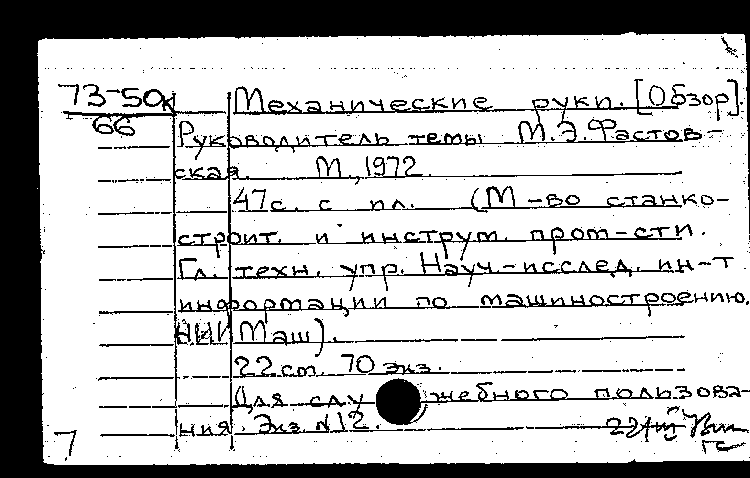 73-50к Механические руки. [Обзор].
66 Руководитель темы М.Э.Фастов-
ская. М., 1972.
47с. с ил. (М-во станко-
строит. и инструм. пром-сти.
Гл. техн. упр. Науч.-исслед. ин-т
информации по машиностроению.
НИИМаш).
22см. 70 экз.
Для служебного пользова-
ния. Экз №12.
7